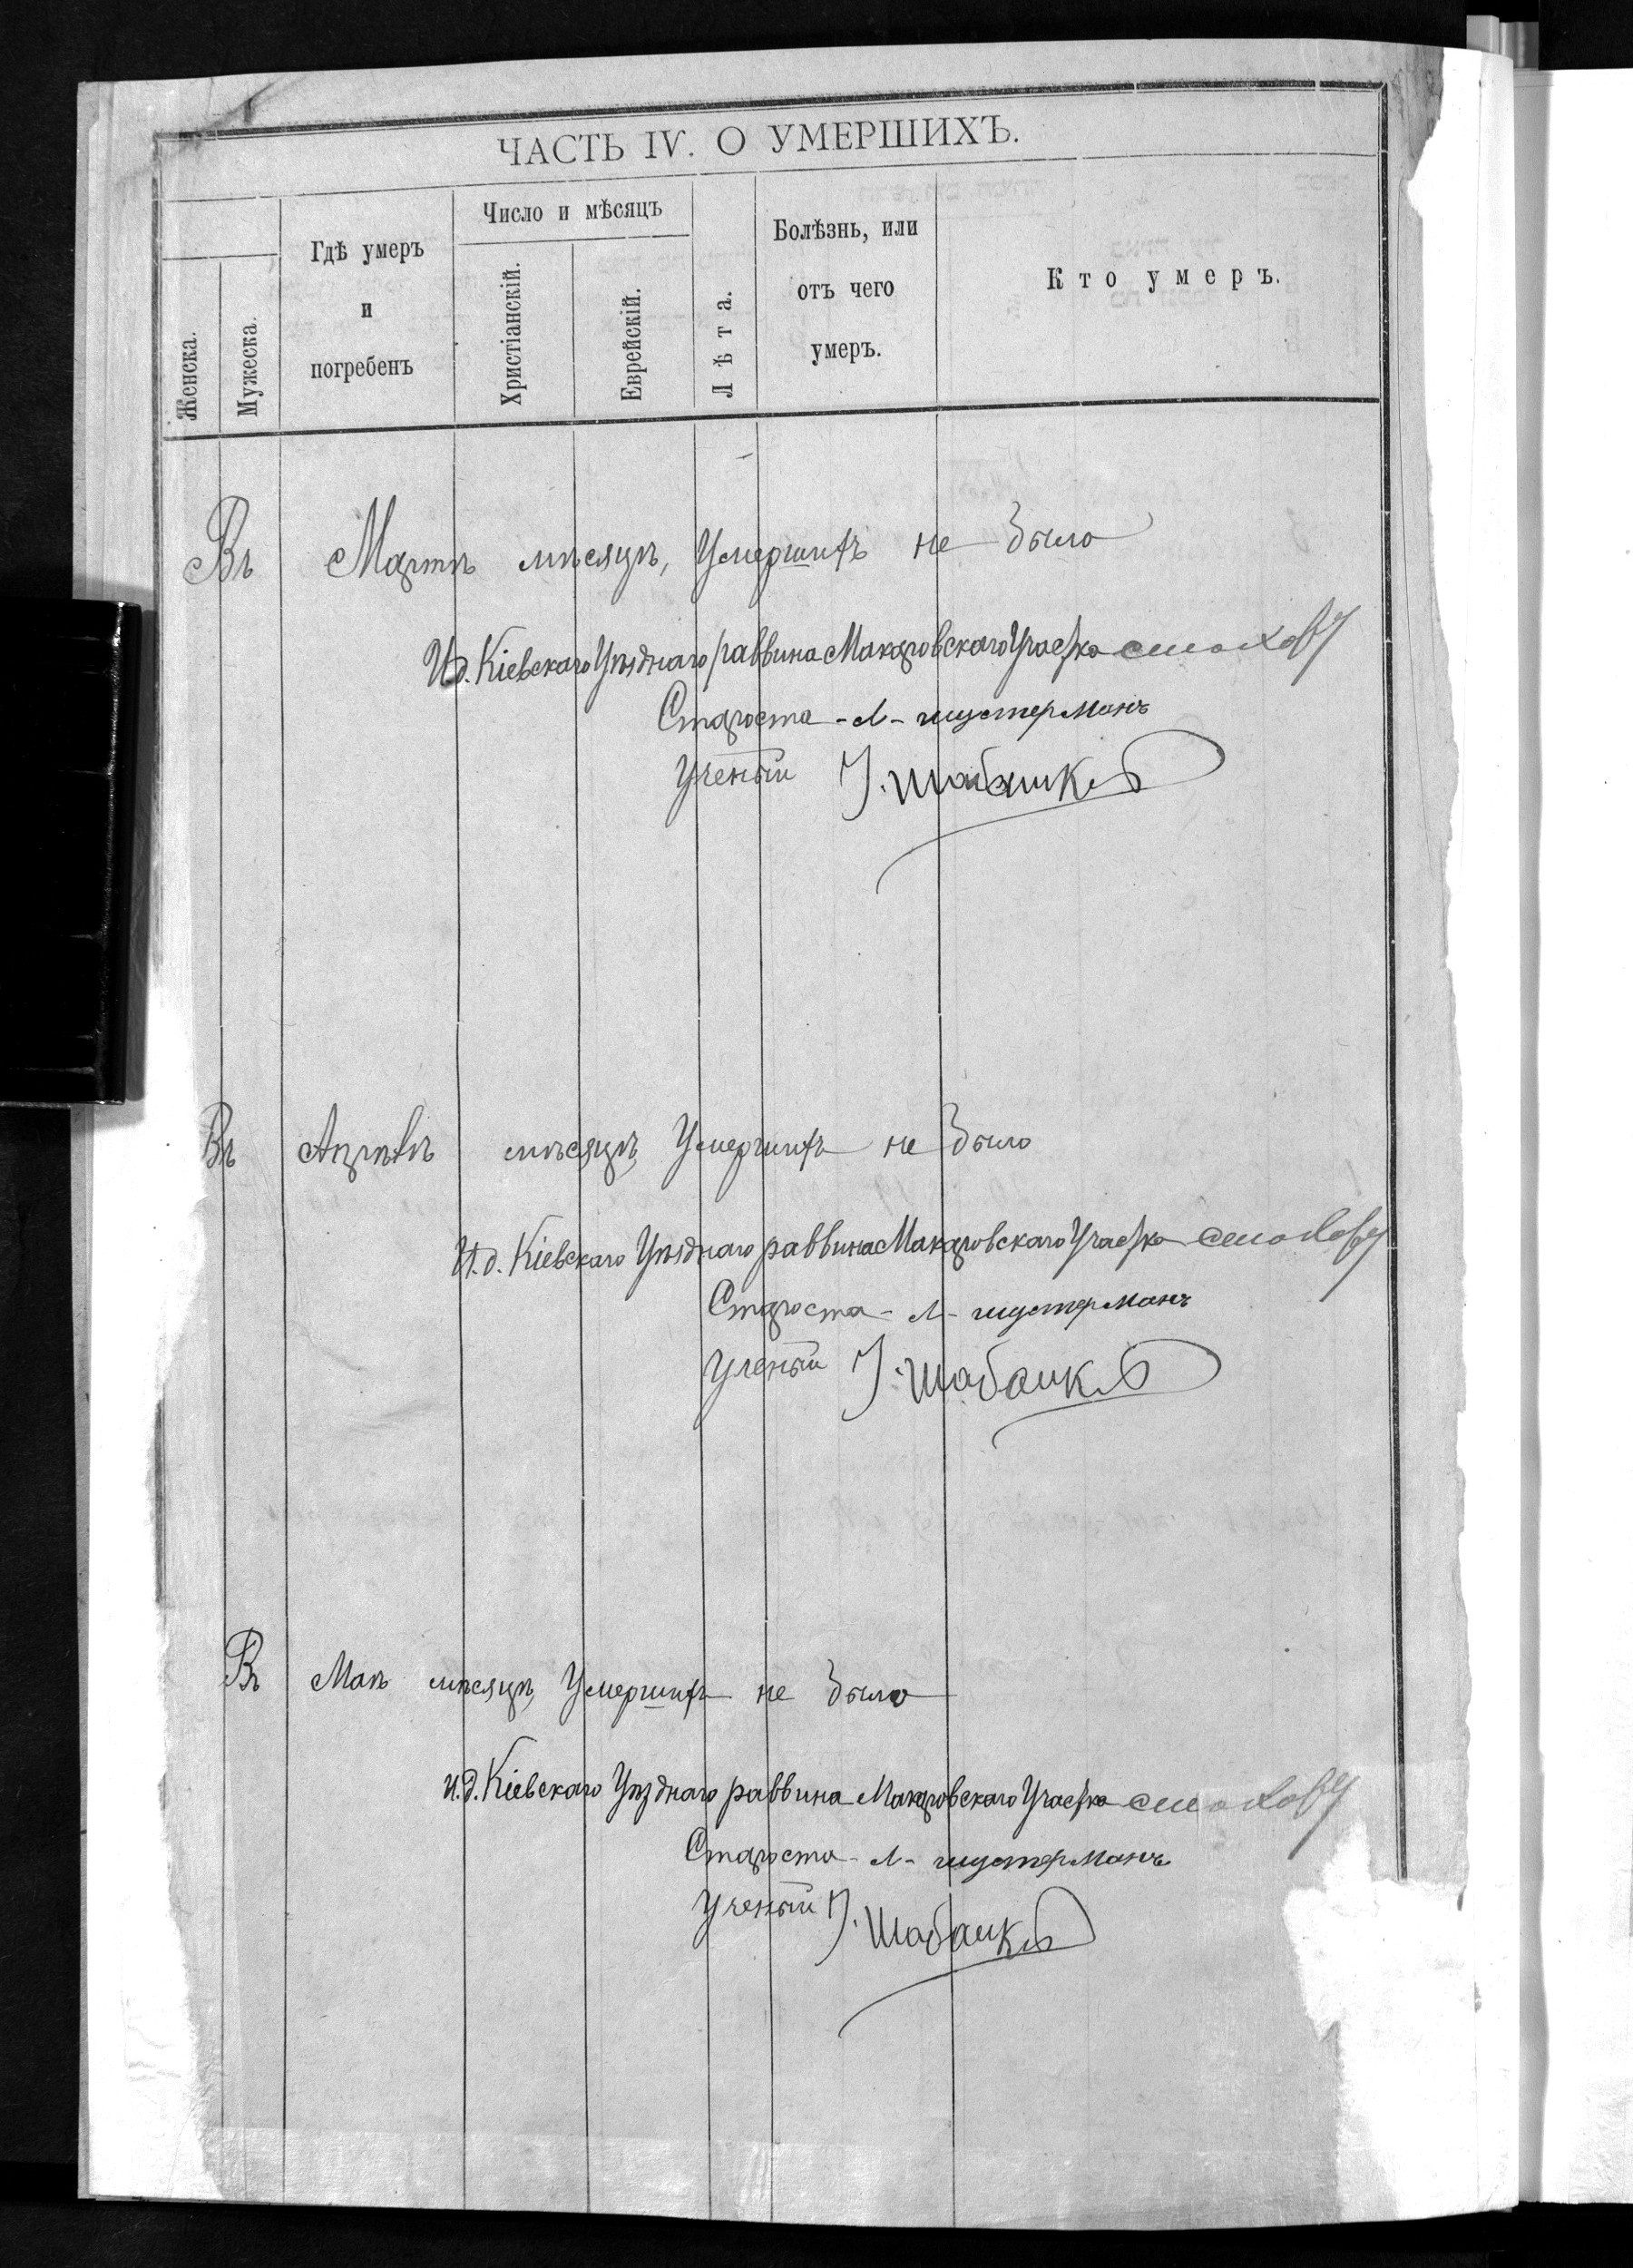 ЧАСТЬ IV. О УМЕРШИХЪ.
Женска.
Мужеска.
Гдѣ умеръ
и
погребенъ
Число и мѣсяцъ
Христіанскій.
Еврейскій.
Лѣта.
Болѣзнь, или
отъ чего
умеръ.
Кто умеръ.
Въ Мартѣ мѣсяцѣ, Умершихъ не было
И.д. Кіевскаго Уѣзднаго раввина Макаровскаго Участка
Староста - Л - шустерманъ
Ученый
Въ Апрѣлѣ мѣсяцѣ, Умершихъ не было
И.д. Кіевскаго Уѣзднаго раввина Макаровскаго Участка
Староста - Л - шустерманъ
Ученый
Въ Маѣ мѣсяцѣ, Умершихъ не было
И.д. Кіевскаго Уѣзднаго раввина Макаровскаго Участка
Староста - Л - шустерманъ
Ученый